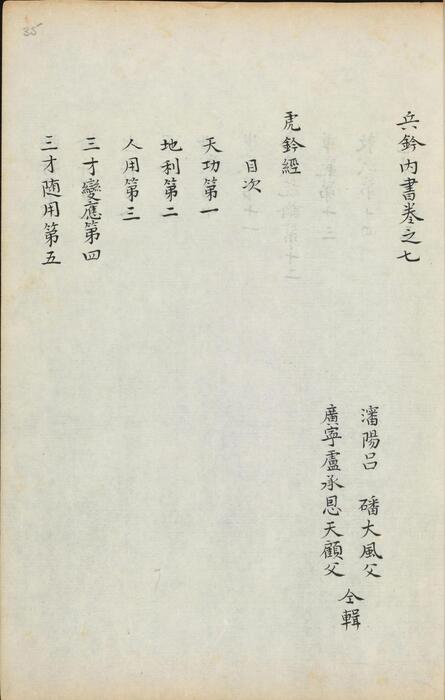 兵鈐內書卷之七
瀋陽呂 磻大風父
廣寧盧承恩天顧父
仝輯
虎鈐經
目次
天功第一
地利第二
人用第三
三才變應第四
三才随用第五
35